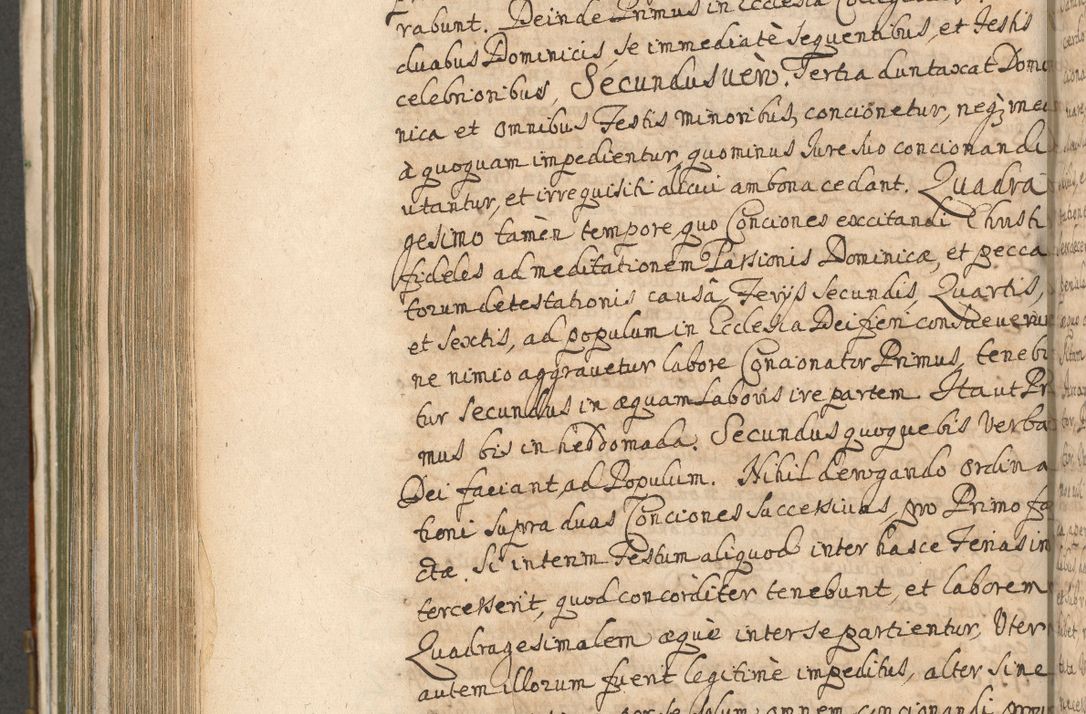 rabunt. Deinde Primus in Ecclesia
duabus Dominicis, se immediatè sequentibus, et Festis
celebrioribus, Secundus verò. Tertia duntaxat Domi
nica et omnibus Festis minoribus, concionetur, neq; in ea
à quoquam impedientur, quominus Jure suo concionandi
utantur, et irrequisiti alicui ambona cedant. Quadra
gesimo tamèn tempore, quo Conciones excitandi Christi
fideles ad meditationem Passionis Dominicæ, et pecca
torum detestationis causâ, Ferijs secundis, Quartis,
et sextis, ad populum in Ecclesia Dei fieri consueverunt
ne nimio aggravetur labore Concionator Primus, tenebi
tur secundus in æquam laboris ire partem. Ita ut Pri
mus bis in hebdomada. Secundus quoque bis Verba
Dei faciant, ad Populum. Nihil derogando ordina
tioni supra duas Conciones successivas, pro Primo fa
ctæ. Si interim Festum aliquod inter hasce Ferias in
tercesserit, quod concorditer tenebunt, et laborem
Quadragesimalem æquè inter se partientur, Uter
autem illorum fuerit legitimè impeditus, alter sine
per se solum omnem concionandi